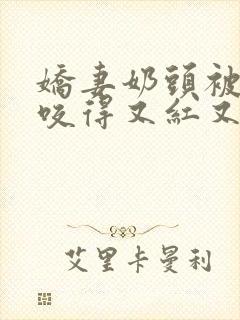 嬌妻奶頭被
咬得又紅又
艾里卡曼利